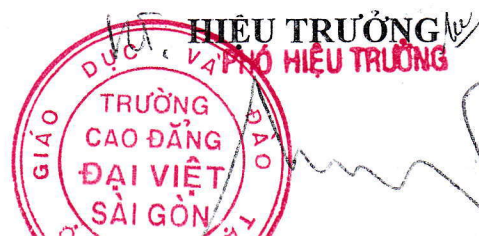 HIỆU TRƯỞNG
PHÓ HIỆU TRƯỞNG
GIÁO DỤC VÀ ĐÀO
TRƯỜNG
CAO ĐẲNG
ĐẠI VIỆT
SÀI GÒN